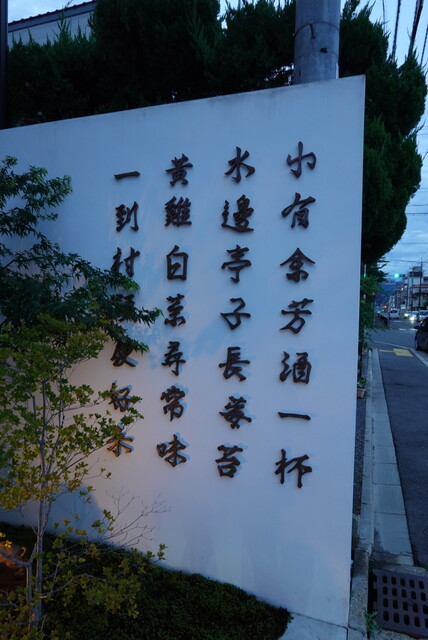 小有余芳酒一杯
水邊亭子長莓苔
黄雞白菜尋常味
一到村